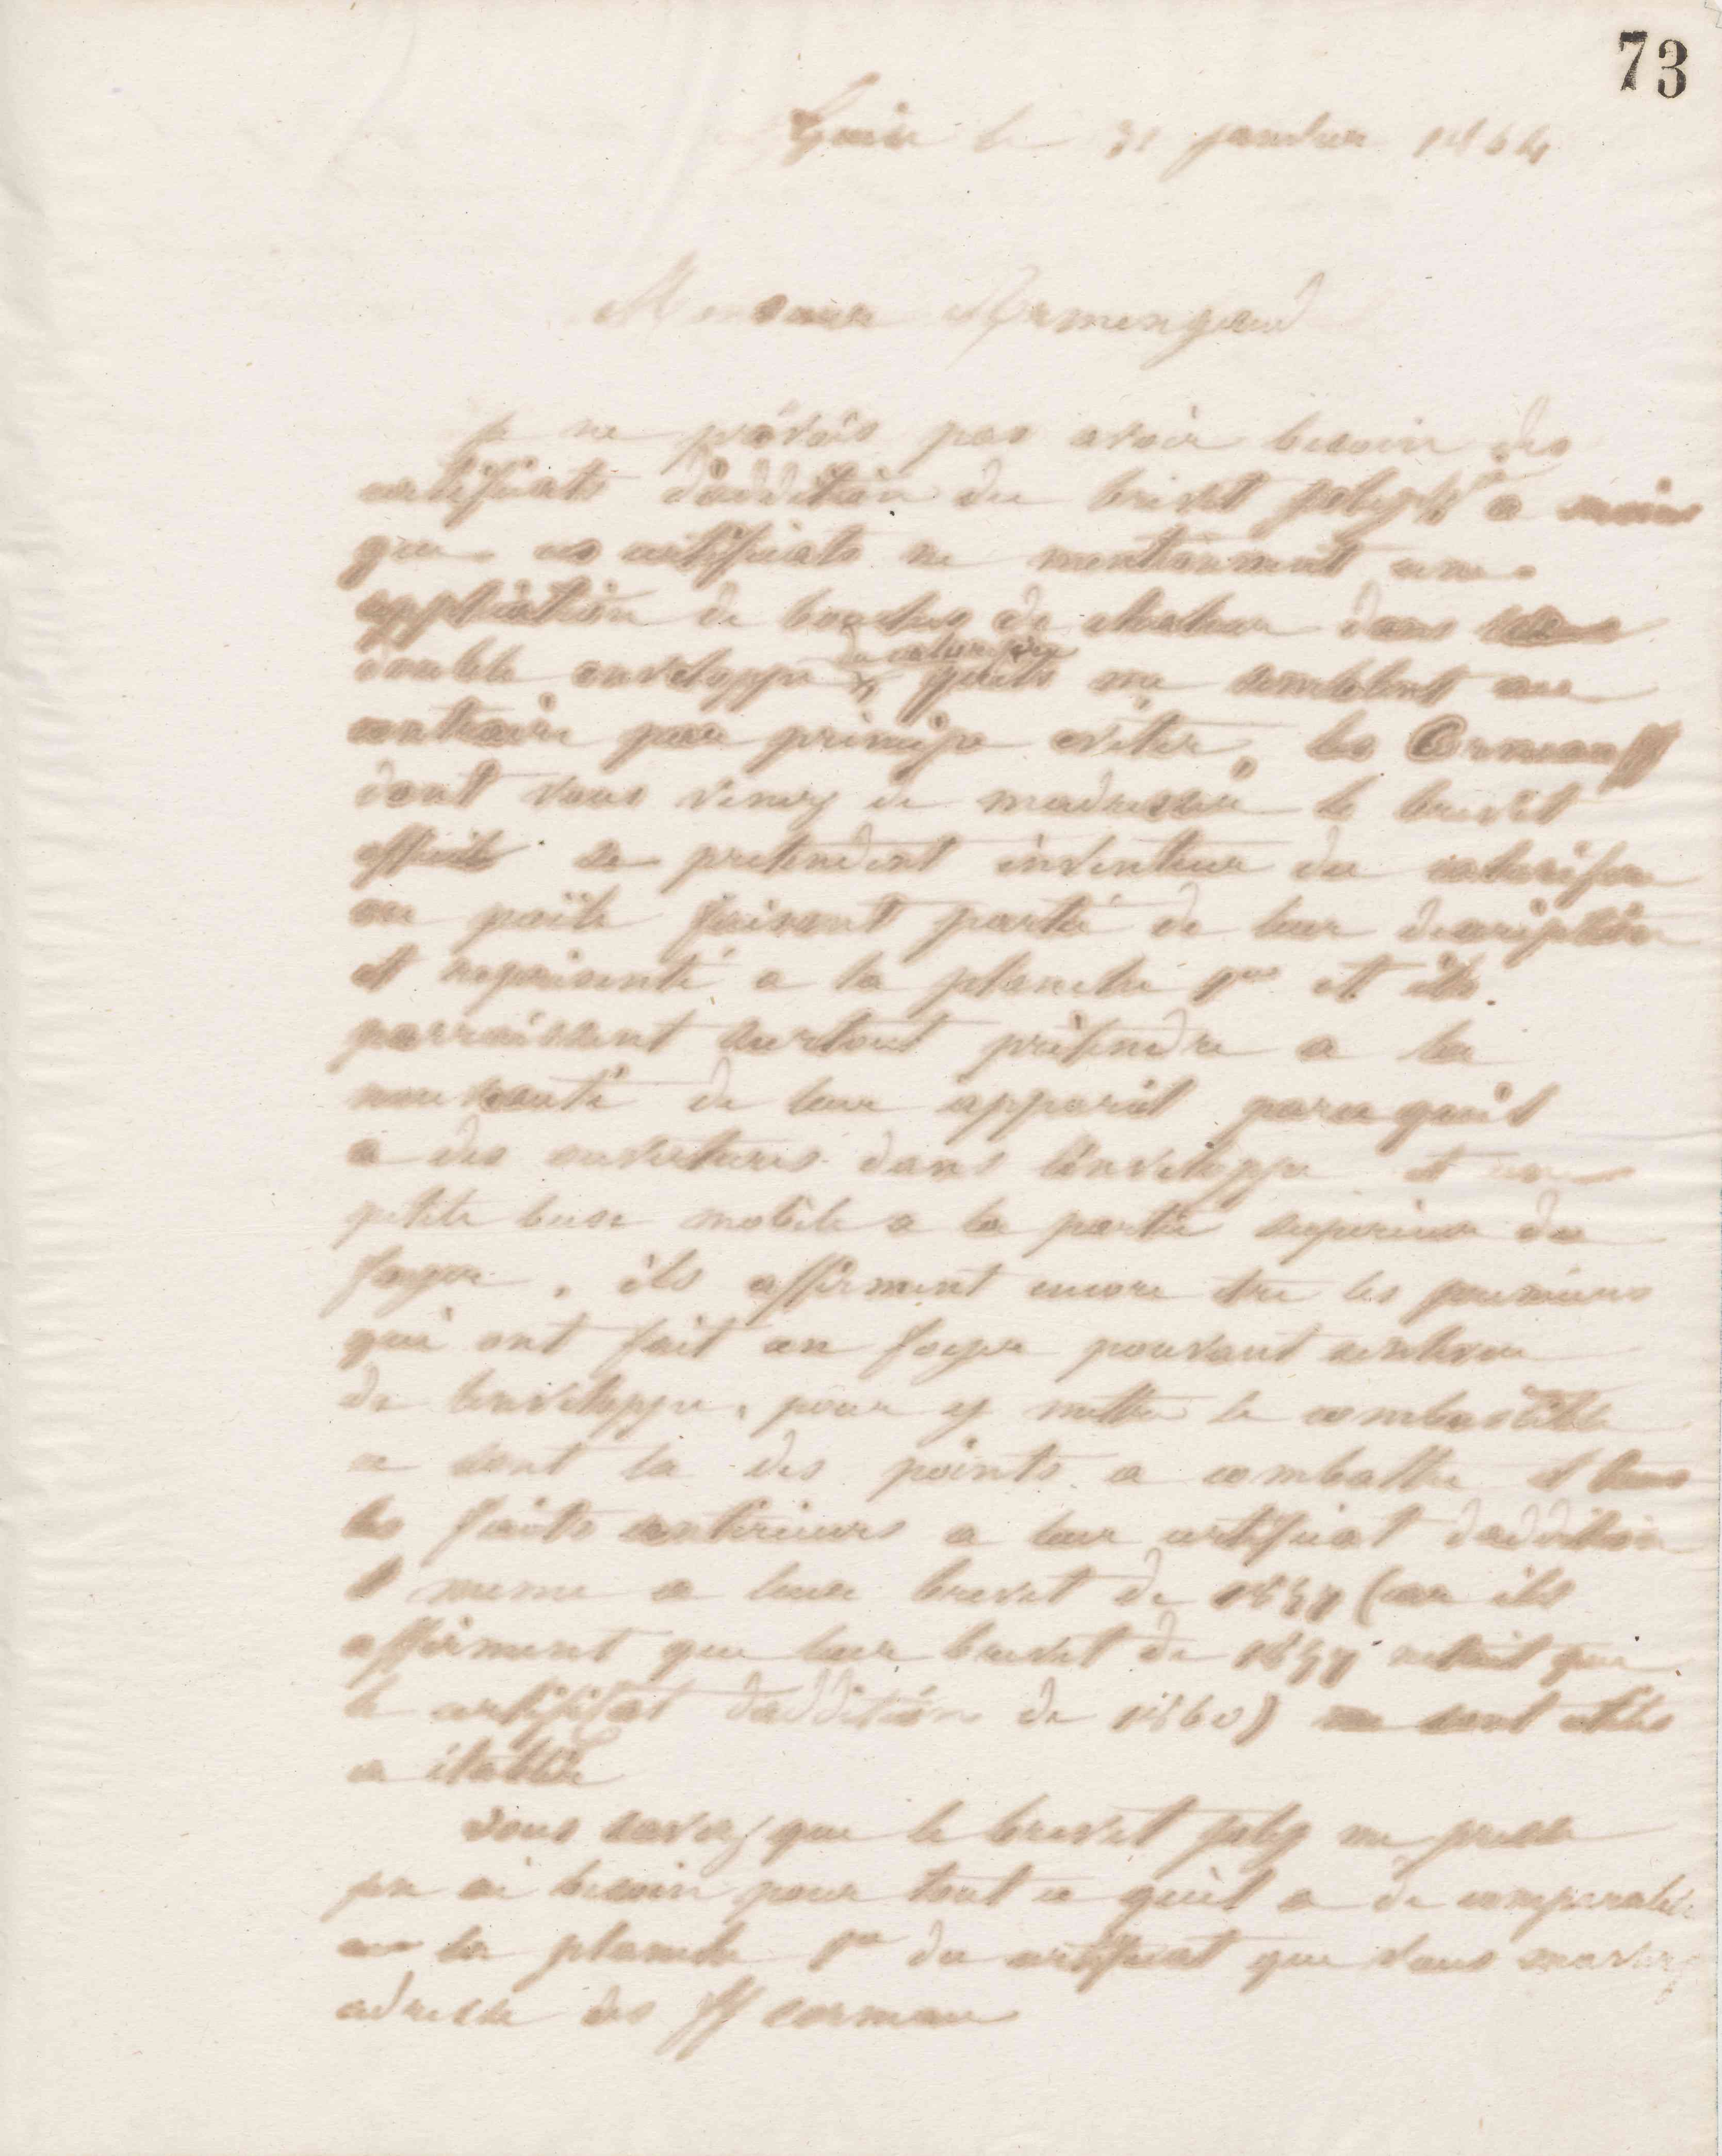 73
Guise le 31 janvier 1864
Monsieur Armengaud
je ne prévois pas avoir besoin des
certificats d'addition du brevet joly à moins
que ces certificats ne mentionnent une
application de bouches de chaleur dans
double enveloppe
du calorifère
quils me semblent au
contraire par principe eviter, les Corneau ff
dont vous venez de madresser le brevet
se pretendent inventeur du calorifere
ou poële faisant partie de leur description
et representé a la planche 1re et ils
parraissent surtout prétendre a la
nouveauté de leur appareil parcequil
a des ouvertures dans lenveloppe et une
petite buse mobile a la partie superieure du
foyer, ils affirment encore etre les premiers
qui ont fait un foyer pouvant senlever
de lenveloppe, pour y mettre le combustible
ce sont la des points a combattre et tous
les faits anterieurs a leur certificat daddition
et meme a leur brevet de 1857 (car ils
affirment que leur brevet de 1857 netait que
le certificat daddition de 1860) me sont utiles
a établir
vous savez que le brevet joly me presse
jen ai besoin pour tout ce quil a de comparable
a la planche 1re du certificat que vous mavez
adresse des ff corneau